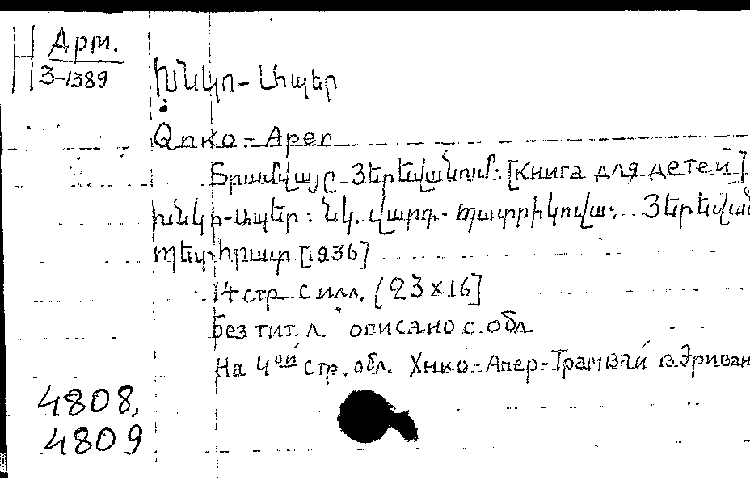 Н Арт.
3-1389
Խնկո-Ապեր
Qnko-Aper
Տրամվայը Յերեվանում: [Книга для детей]
Խնկո-Ապեր: Նկ. Վարդ. Պատրիկովա: .. Յերեվան
Պետհրատ [1936]
14 стр. с илл. (23×16]
Без тит. л. описано с обл.
На 4ой стр. обл. Хнко-Апер-Трамвай в Эриван
4808,
4809